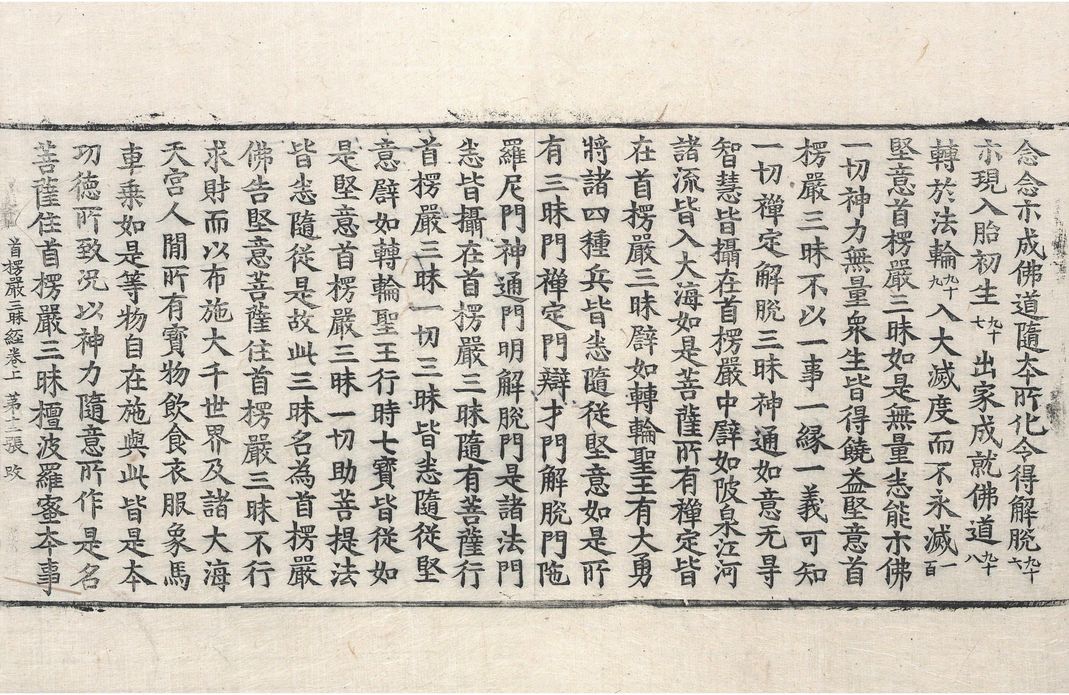 念念示成佛道隨本所化令得解脫九十六
示現入胎初生九十七出家成就佛道九十八
轉於法輪九十九入大滅度而不永滅一百
堅意首楞嚴三昧如是無量悉能示佛
一切神力無量衆生皆得饒益堅意首
楞嚴三昧不以一事一緣一義可知
一切禪定解脫三昧神通如意无㝵
智慧皆攝在首楞嚴中譬如陂泉江河
諸流皆入大海如是菩薩所有禪定皆
在首楞嚴三昧譬如轉輪聖王有大勇
將諸四種兵皆悉隨從堅意如是所
有三昧門禪定門辯才門解脫門陁
羅尼門神通門明解脫門是諸法門
悉皆攝在首楞嚴三昧隨有菩薩行
首楞嚴三昧一切三昧皆悉隨從堅
意譬如轉輪聖王行時七寶皆從如
是堅意首楞嚴三昧一切助菩提法
皆悉隨從是故此三昧名為首楞嚴
佛告堅意菩薩住首楞嚴三昧不行
求財而以布施大千世界及諸大海
天宮人閒所有寶物飲食衣服象馬
車乗如是等物自在施與此皆是本
功德所致況以神力隨意所作是名
菩薩住首楞嚴三昧檀波羅蜜本事
首楞嚴三昧經卷上 第十二張 改